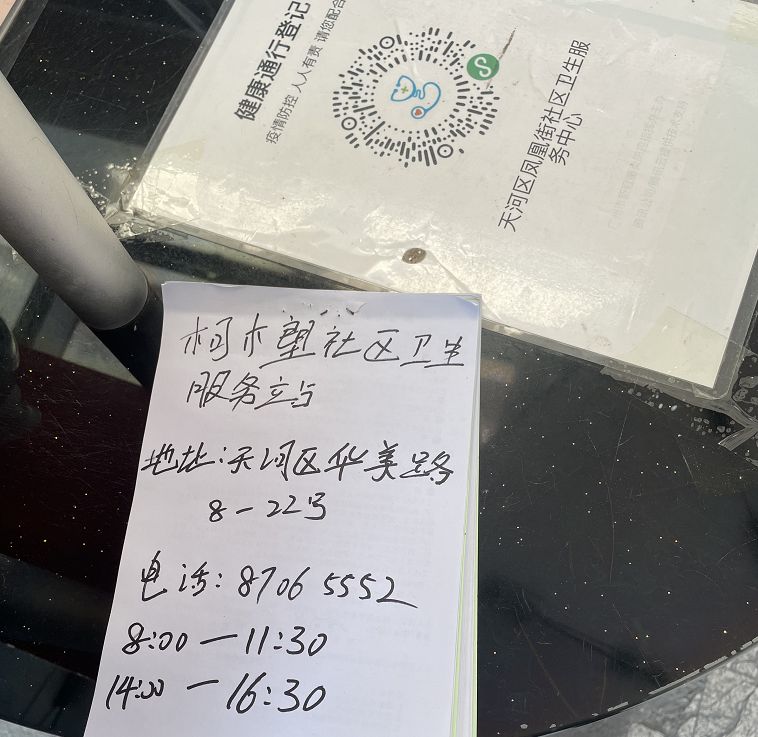 健康通行登记
疫情防控 人人有责 请您配合
天河区凤凰街社区卫生服
务中心
柯木塱社区卫生
服务立占
地址:天河区华美路
8-22号
电话:8706 5552
8:00-11:30
14:00-16:30